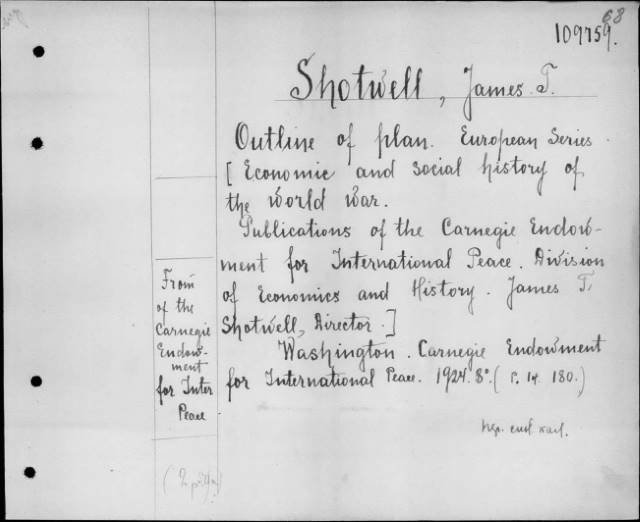 68
109759.
Shotwell, James T.
Outline of plan. European Series.
[Economic and social history of
the world war.
Publications of the Carnegie Endow-
ment for International Peace. Division
of Economics and History. James T.
Shotwell, Director.]
Washington. Carnegie Endowment
for International Peace. 1924. 8°. (P. 14. 180.)
From
of the
Carnegie
Endow-
ment
for Inter
Peace